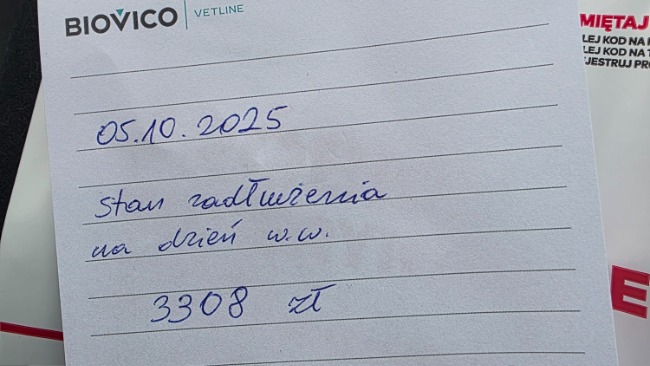 BIOVICO VETLINE
MIĘTAJ
LEJ KOD NA
LEJ KOD NA
JESTRUJ PR
05.10.2025
stan zadłużenia
na dzień w.w.
3308 zł
E